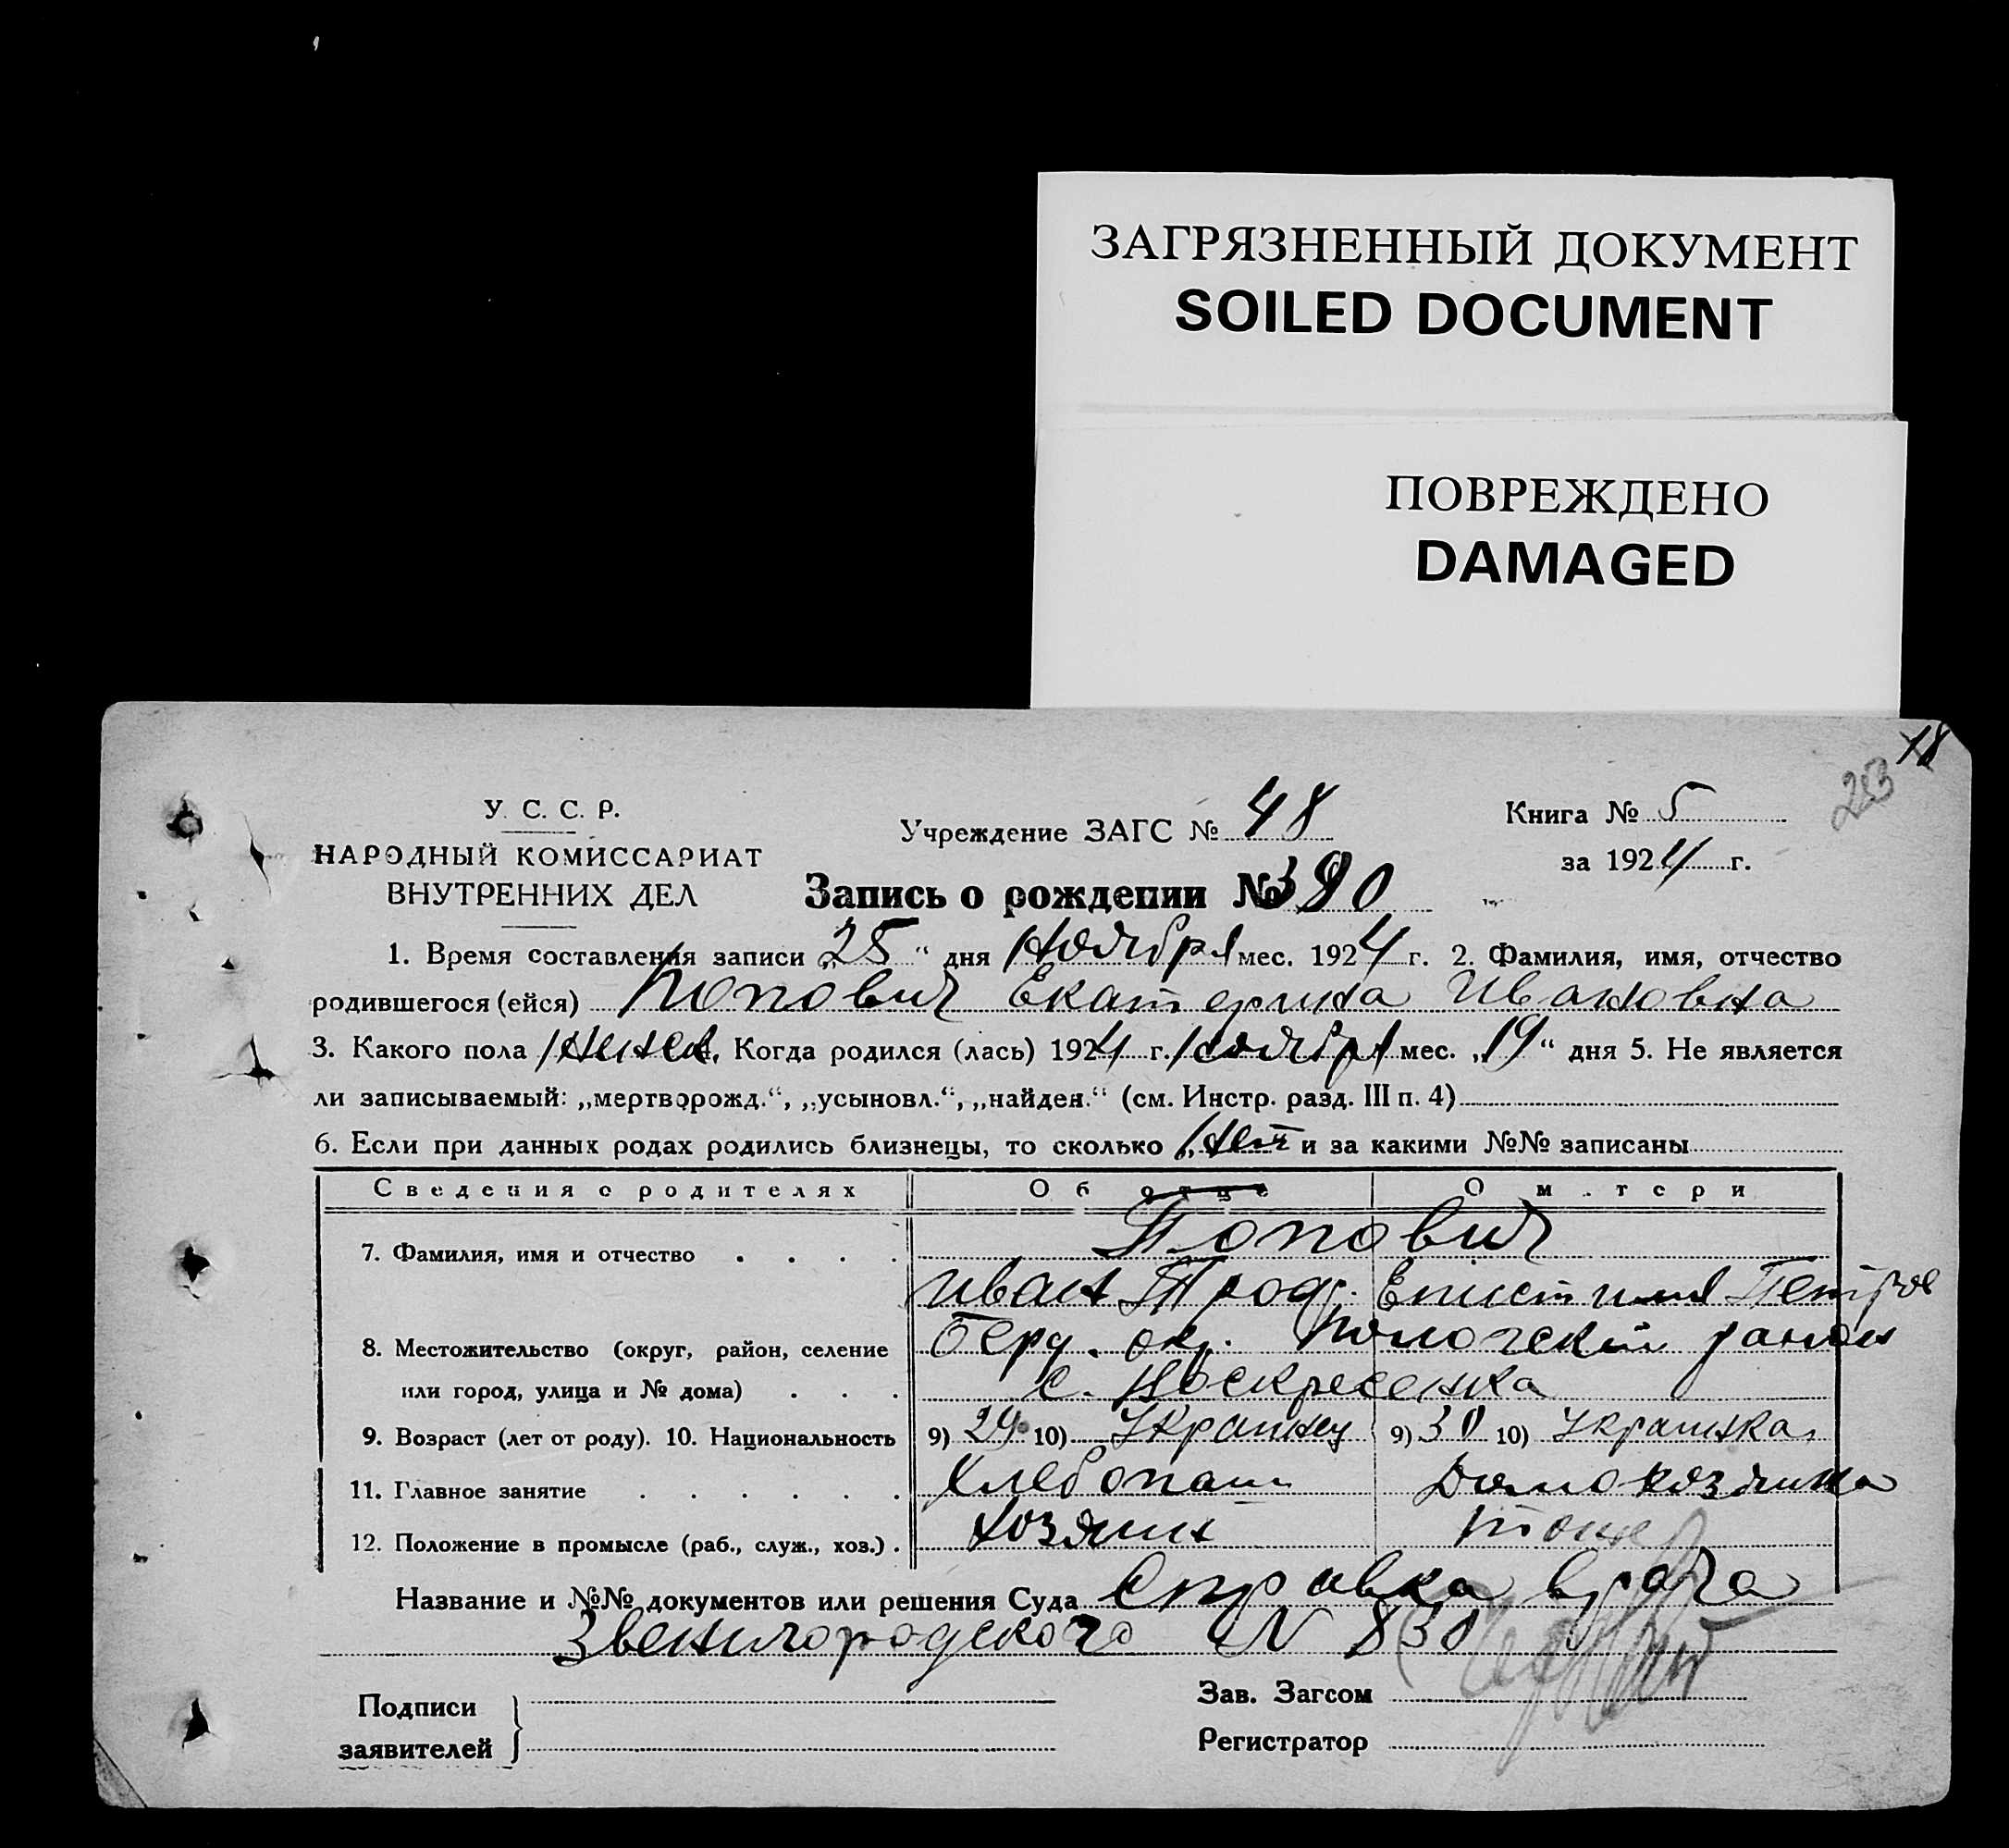 ЗАГРЯЗНЕННЫЙ ДОКУМЕНТ
SOILED DOCUMENT
ПОВРЕЖДЕНО
DAMAGED
18
У. С. С. Р.
НАРОДНЫЙ КОМИССАРИАТ
ВНУТРЕННИХ ДЕЛ
Учреждение ЗАГС № 48
Книга № 5
за 1924 г.
Запись о рождении № 390
1. Время составления записи „25“ дня Ноября мес. 1924 г. 2. Фамилия, имя, отчество
родившегося (ейся) Попович Екатерина Ивановна
3. Какого пола женск. Когда родился (лась) 1924 г. Ноября мес. „19“ дня 5. Не является
ли записываемый: „мертворожд.“, „усыновл.“, „найден.“ (см. Инстр. разд. III п. 4)
6. Если при данных родах родились близнецы, то сколько Нет и за какими №№ записаны
Сведения о родителях Об отце О матери
7. Фамилия, имя и отчество Попович
Иван Епистимия Петров
8. Местожительство (округ, район, селение Берд. окр. район
или город, улица и № дома) с. Воскресенка
9. Возраст (лет от роду). 10. Национальность 9) 29 10) Украинец 9) 30 10) Украинка
11. Главное занятие Хлебопаш Домохозяика
12. Положение в промысле (раб., служ., хоз.) Хозяин
Название и №№ документов или решения Суда Справка врача
Звенигородского N 830
Подписи
заявителей
Зав. Загсом
Регистратор